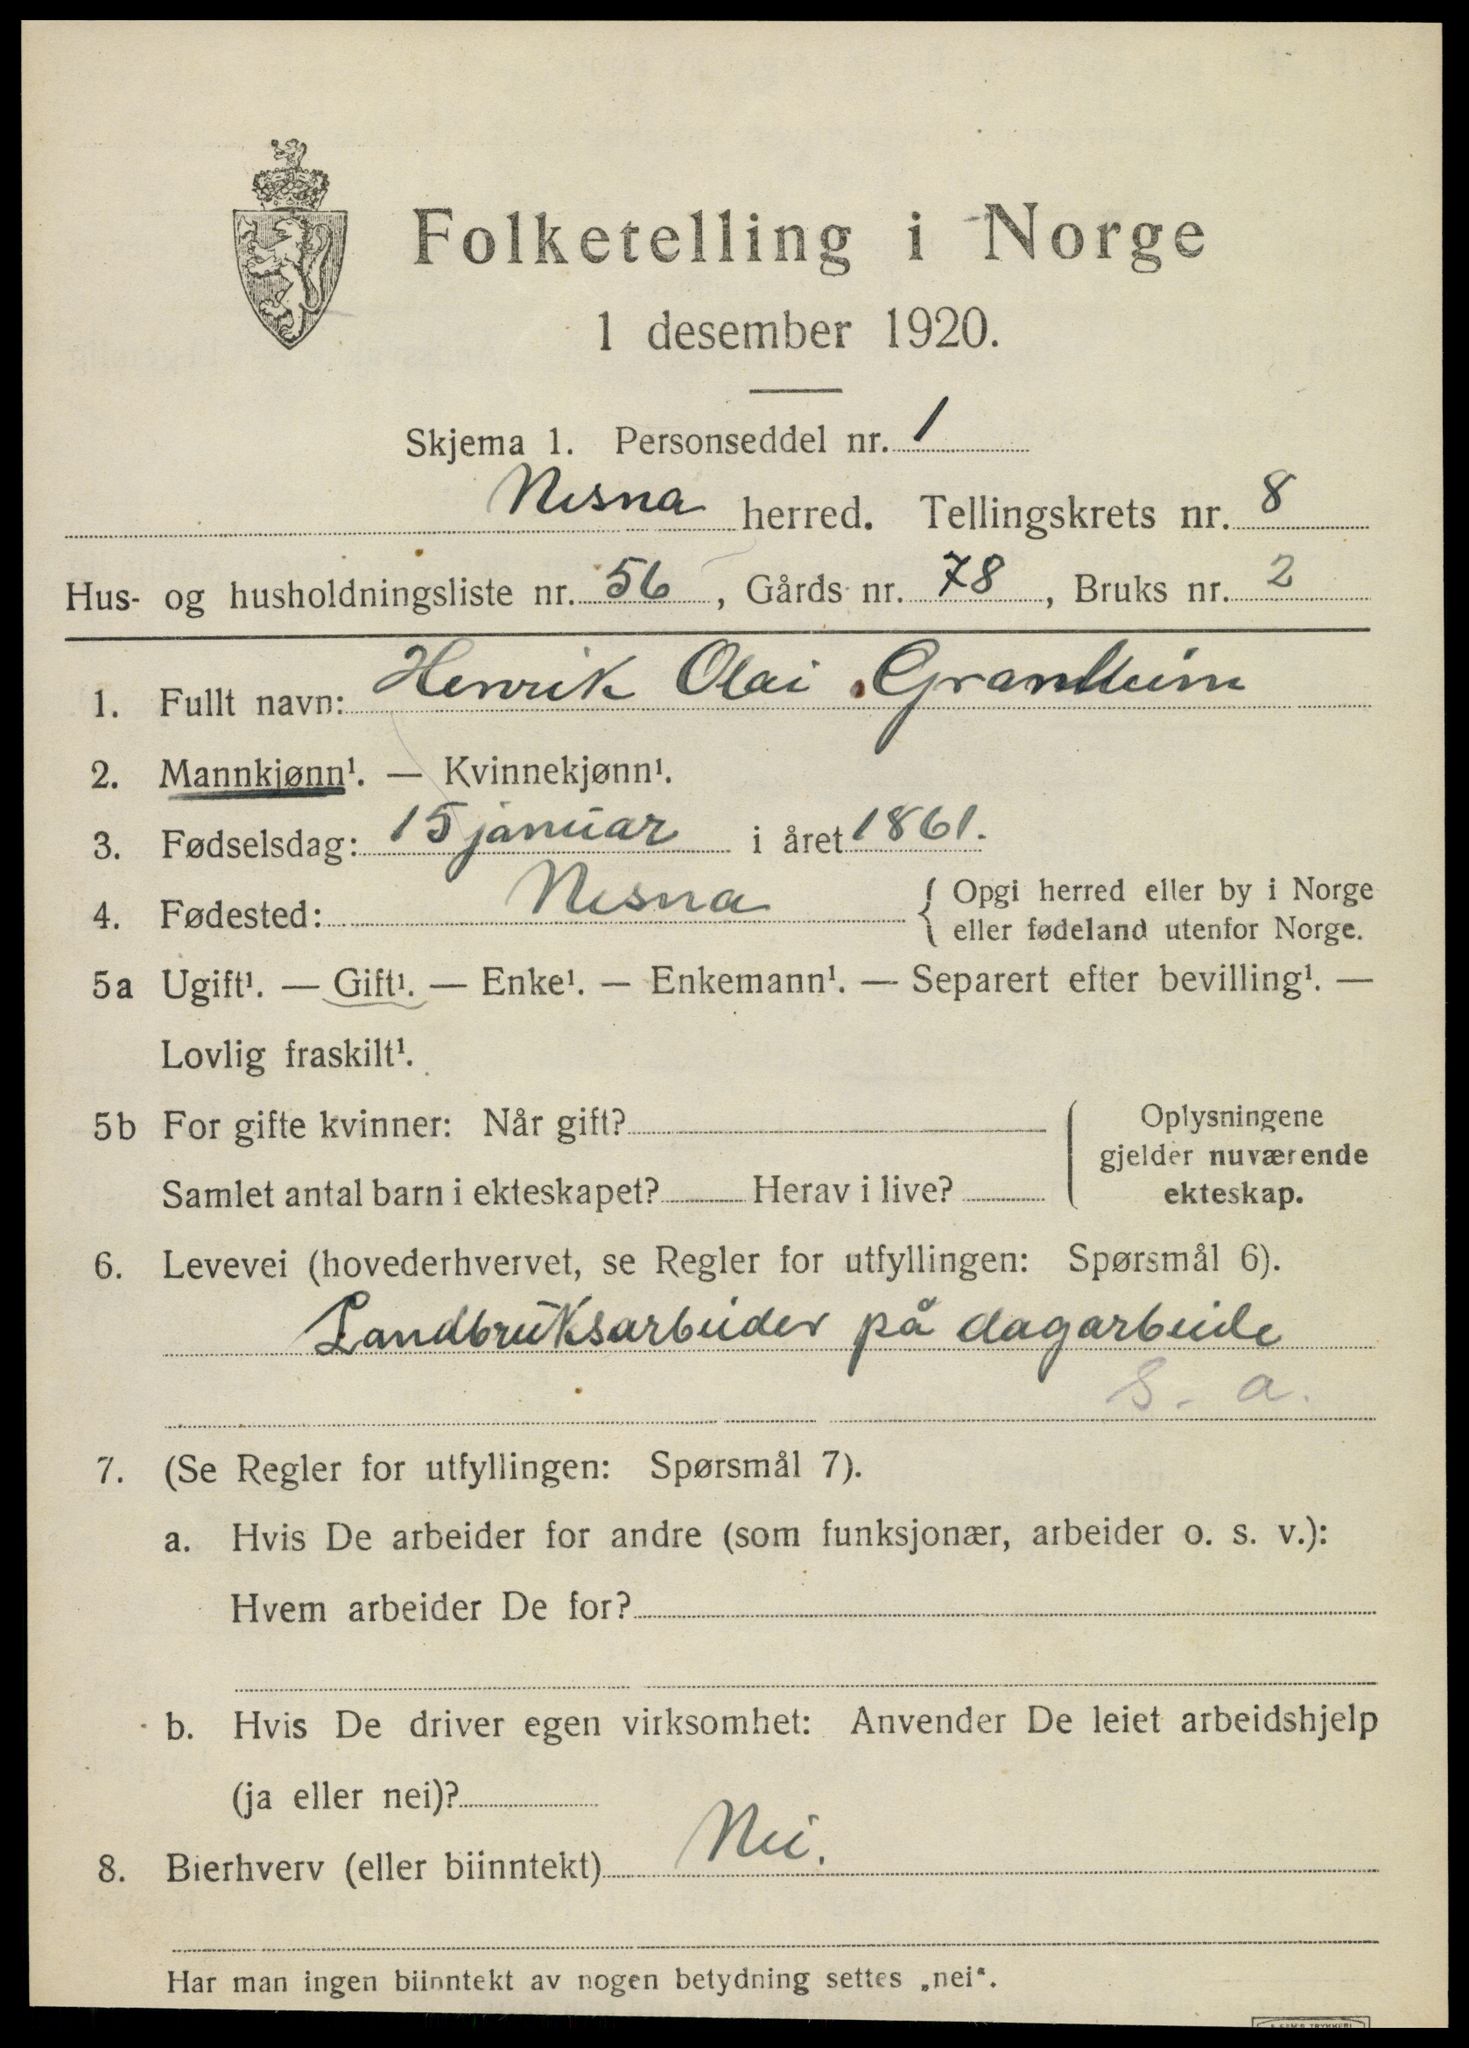 Folketelling i Norge
1 desember 1920.
Skjema 1. Personseddel nr. 1
Nesna herred. Tellingskrets nr. 8
Hus- og husholdningsliste nr. 56, Gårds nr. 78, Bruks nr. 2
1. Fullt navn: Henrik Olai Granheim
2. Mannkjønn¹. — Kvinnekjønn¹.
3. Fødselsdag: 15 januar i året 1861.
4. Fødested: Nesna { Opgi herred eller by i Norge
eller fødeland utenfor Norge.
5a Ugift¹. — Gift¹. — Enke¹. — Enkemann¹. — Separert efter bevilling¹. —
Lovlig fraskilt¹.
5b For gifte kvinner: Når gift?
Samlet antal barn i ekteskapet? Herav i live?
Oplysningene
gjelder nuværende
ekteskap.
6. Levevei (hovederhvervet, se Regler for utfyllingen: Spørsmål 6).
Landbruksarbeider på dagarbeide
S. a.
7. (Se Regler for utfyllingen: Spørsmål 7).
a. Hvis De arbeider for andre (som funksjonær, arbeider o. s. v.):
Hvem arbeider De for?
b. Hvis De driver egen virksomhet: Anvender De leiet arbeidshjelp
(ja eller nei)?
8. Bierhverv (eller biinntekt) Nei.
Har man ingen biinntekt av nogen betydning settes „nei“.